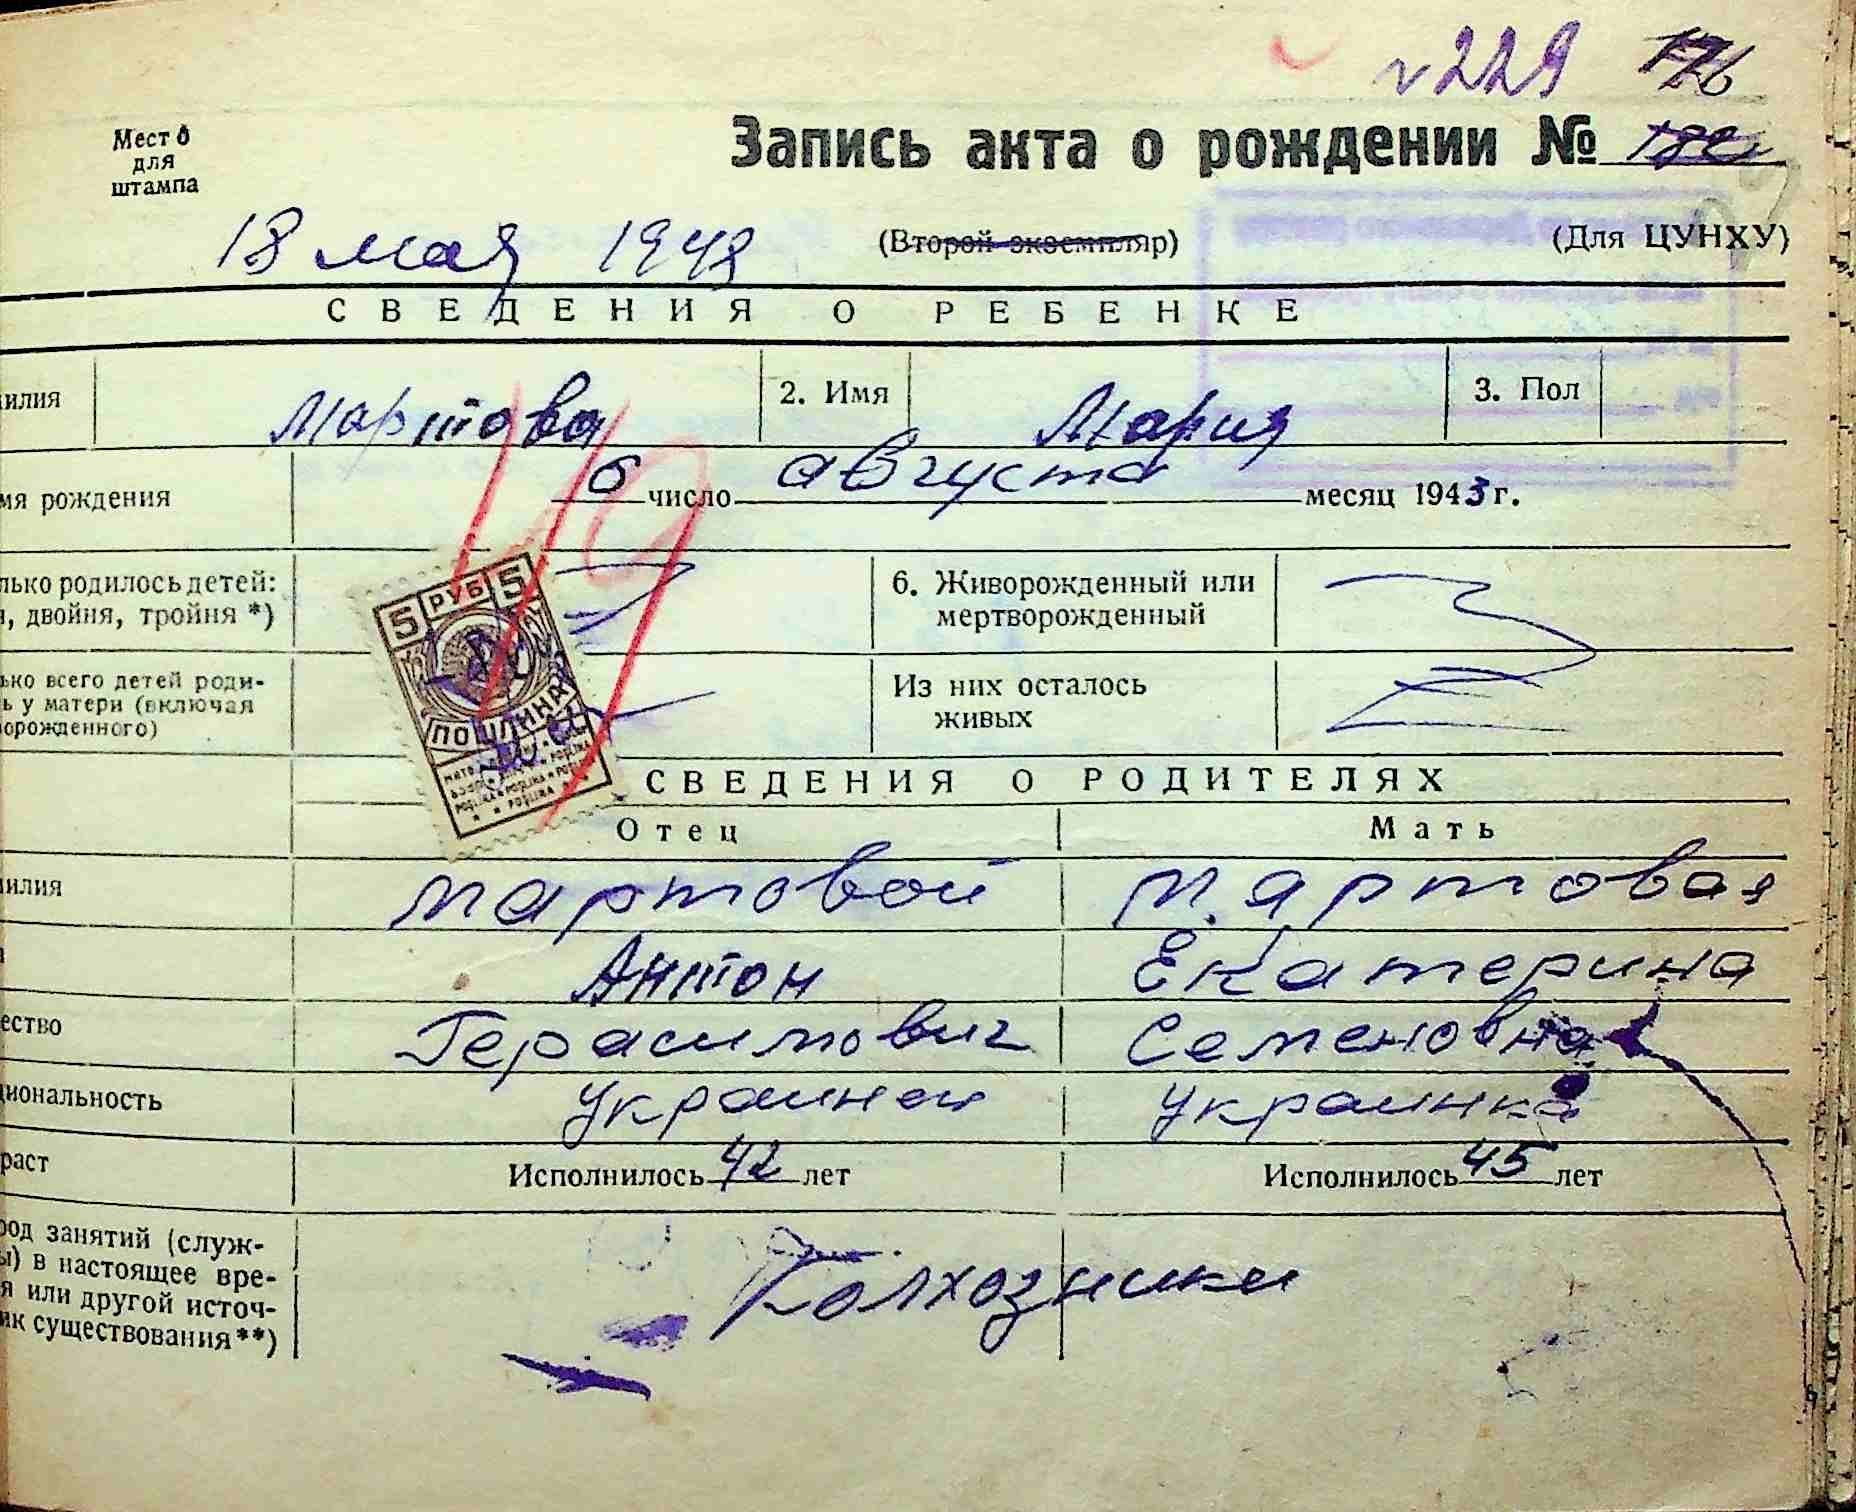 №229 176
Место
для
штампа
Запись акта о рождении №
18 мая 1948
(Второй экземпляр)
(Для ЦУНХУ)
СВЕДЕНИЯ О РЕБЕНКЕ
илия Мартова 2. Имя Мария 3. Пол
мя рождения 6 число августа месяц 1943 г.
лько родилось детей:
, двойня, тройня *)
6. Живорожденный или
мертворожденный
ько всего детей роди-
ь у матери (включая
орожденного)
Из них осталось
живых
5 РУБ 5
ПОШЛИНА
19
СВЕДЕНИЯ О РОДИТЕЛЯХ
Отец Мать
илия Мартовой Мартовая
Антон Екатерина
ество Герасимович Семеновна
циональность украинец украинка
раст Исполнилось 42 лет Исполнилось 45 лет
род занятий (служ-
ы) в настоящее вре-
я или другой источ-
ик существования **)
Колхозники